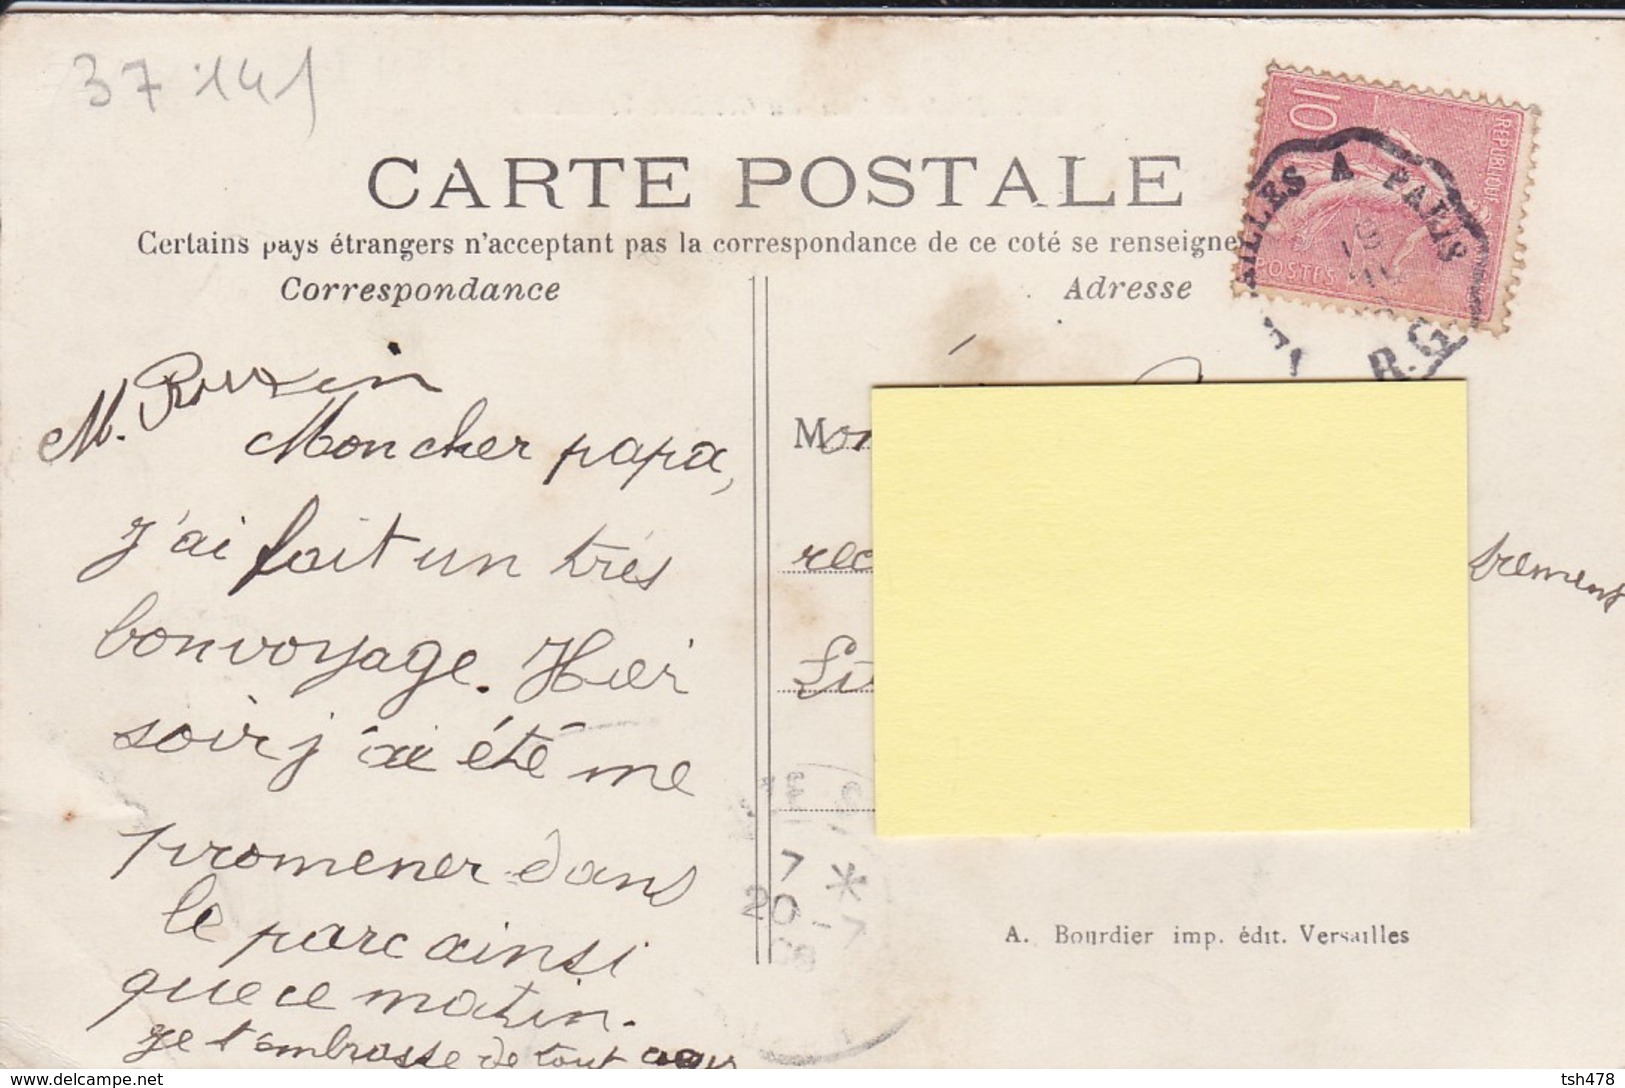 37141
CARTE POSTALE
Certains pays étrangers n'acceptant pas la correspondance de ce coté se renseigne
Correspondance
Adresse
10
REPUBLIQUE
POSTES
AILLES A PARIS
R.G
M. Rouzin
Mon cher papa,
j'ai fait un très
bon voyage. Hier
soir j'ai été me
promener dans
le parc ainsi
que ce matin.
Je t'embrasse de tout cœur
Mon
rec
trement
7 *
20 - 7
08
A. Bourdier imp. édit. Versailles
delcampe.net
tsh478